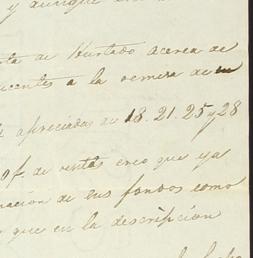 y aunque
ta de Hurtado acerca de
ucentes a la remesa de
apreciadas de 18. 21. 25 y 28
of. de ventas creo que ya
mación de sus fondos como
que en la descripción